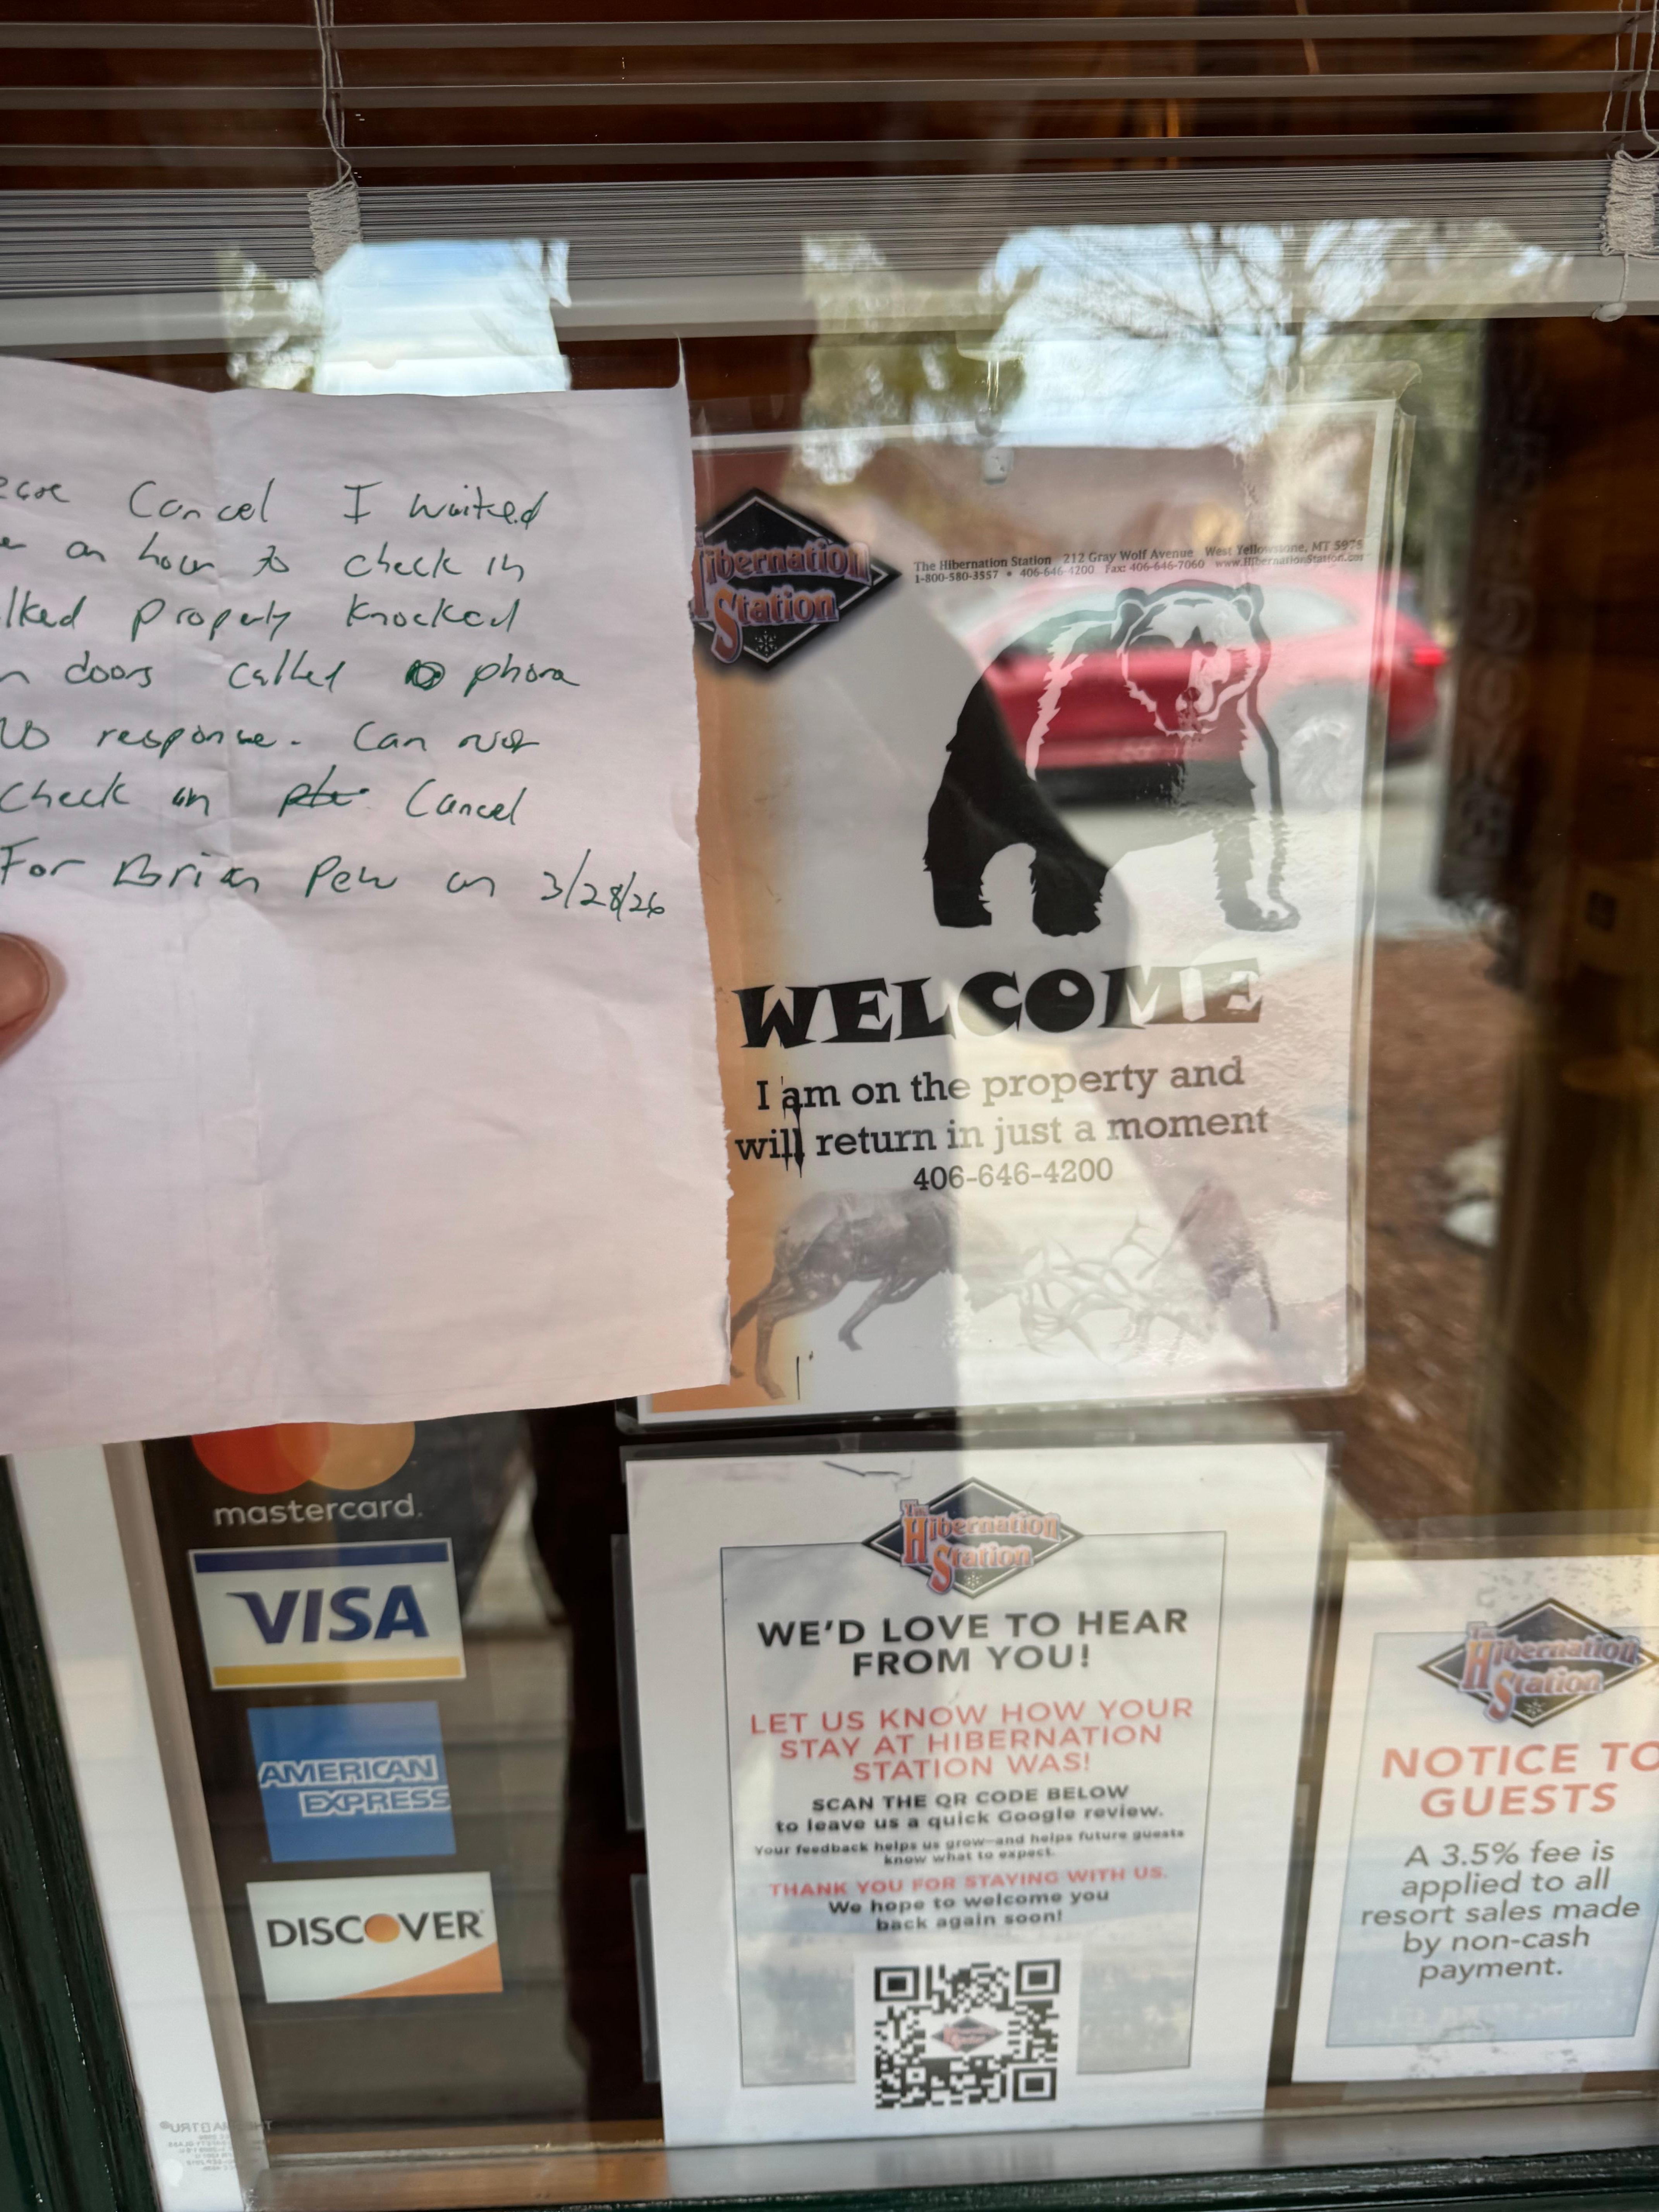 Cancel I waited
an hour to check in
lked property knocked
n doors called phone
No response. Can not
check in Cancel
For Brian Pew on 3/28/26
Hibernation
Station
The Hibernation Station 212 Gray Wolf Avenue West Yellowstone, MT 5975
1-800-580-3557 • 406-646-4200 Fax: 406-646-7060 www.HibernationStation.com
WELCOME
I am on the property and
will return in just a moment
406-646-4200
mastercard.
VISA
AMERICAN
EXPRESS
DISCOVER
The
Hibernation
Station
WE'D LOVE TO HEAR
FROM YOU!
LET US KNOW HOW YOUR
STAY AT HIBERNATION
STATION WAS!
SCAN THE QR CODE BELOW
to leave us a quick Google review.
Your feedback helps us grow—and helps future guests
know what to expect.
THANK YOU FOR STAYING WITH US.
We hope to welcome you
back again soon!
The
Hibernation
Station
NOTICE TO
GUESTS
A 3.5% fee is
applied to all
resort sales made
by non-cash
payment.